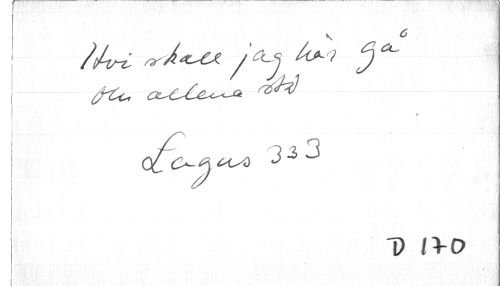 Hvi skall jag här gå
Och allena stå
Lagus 333
D 170